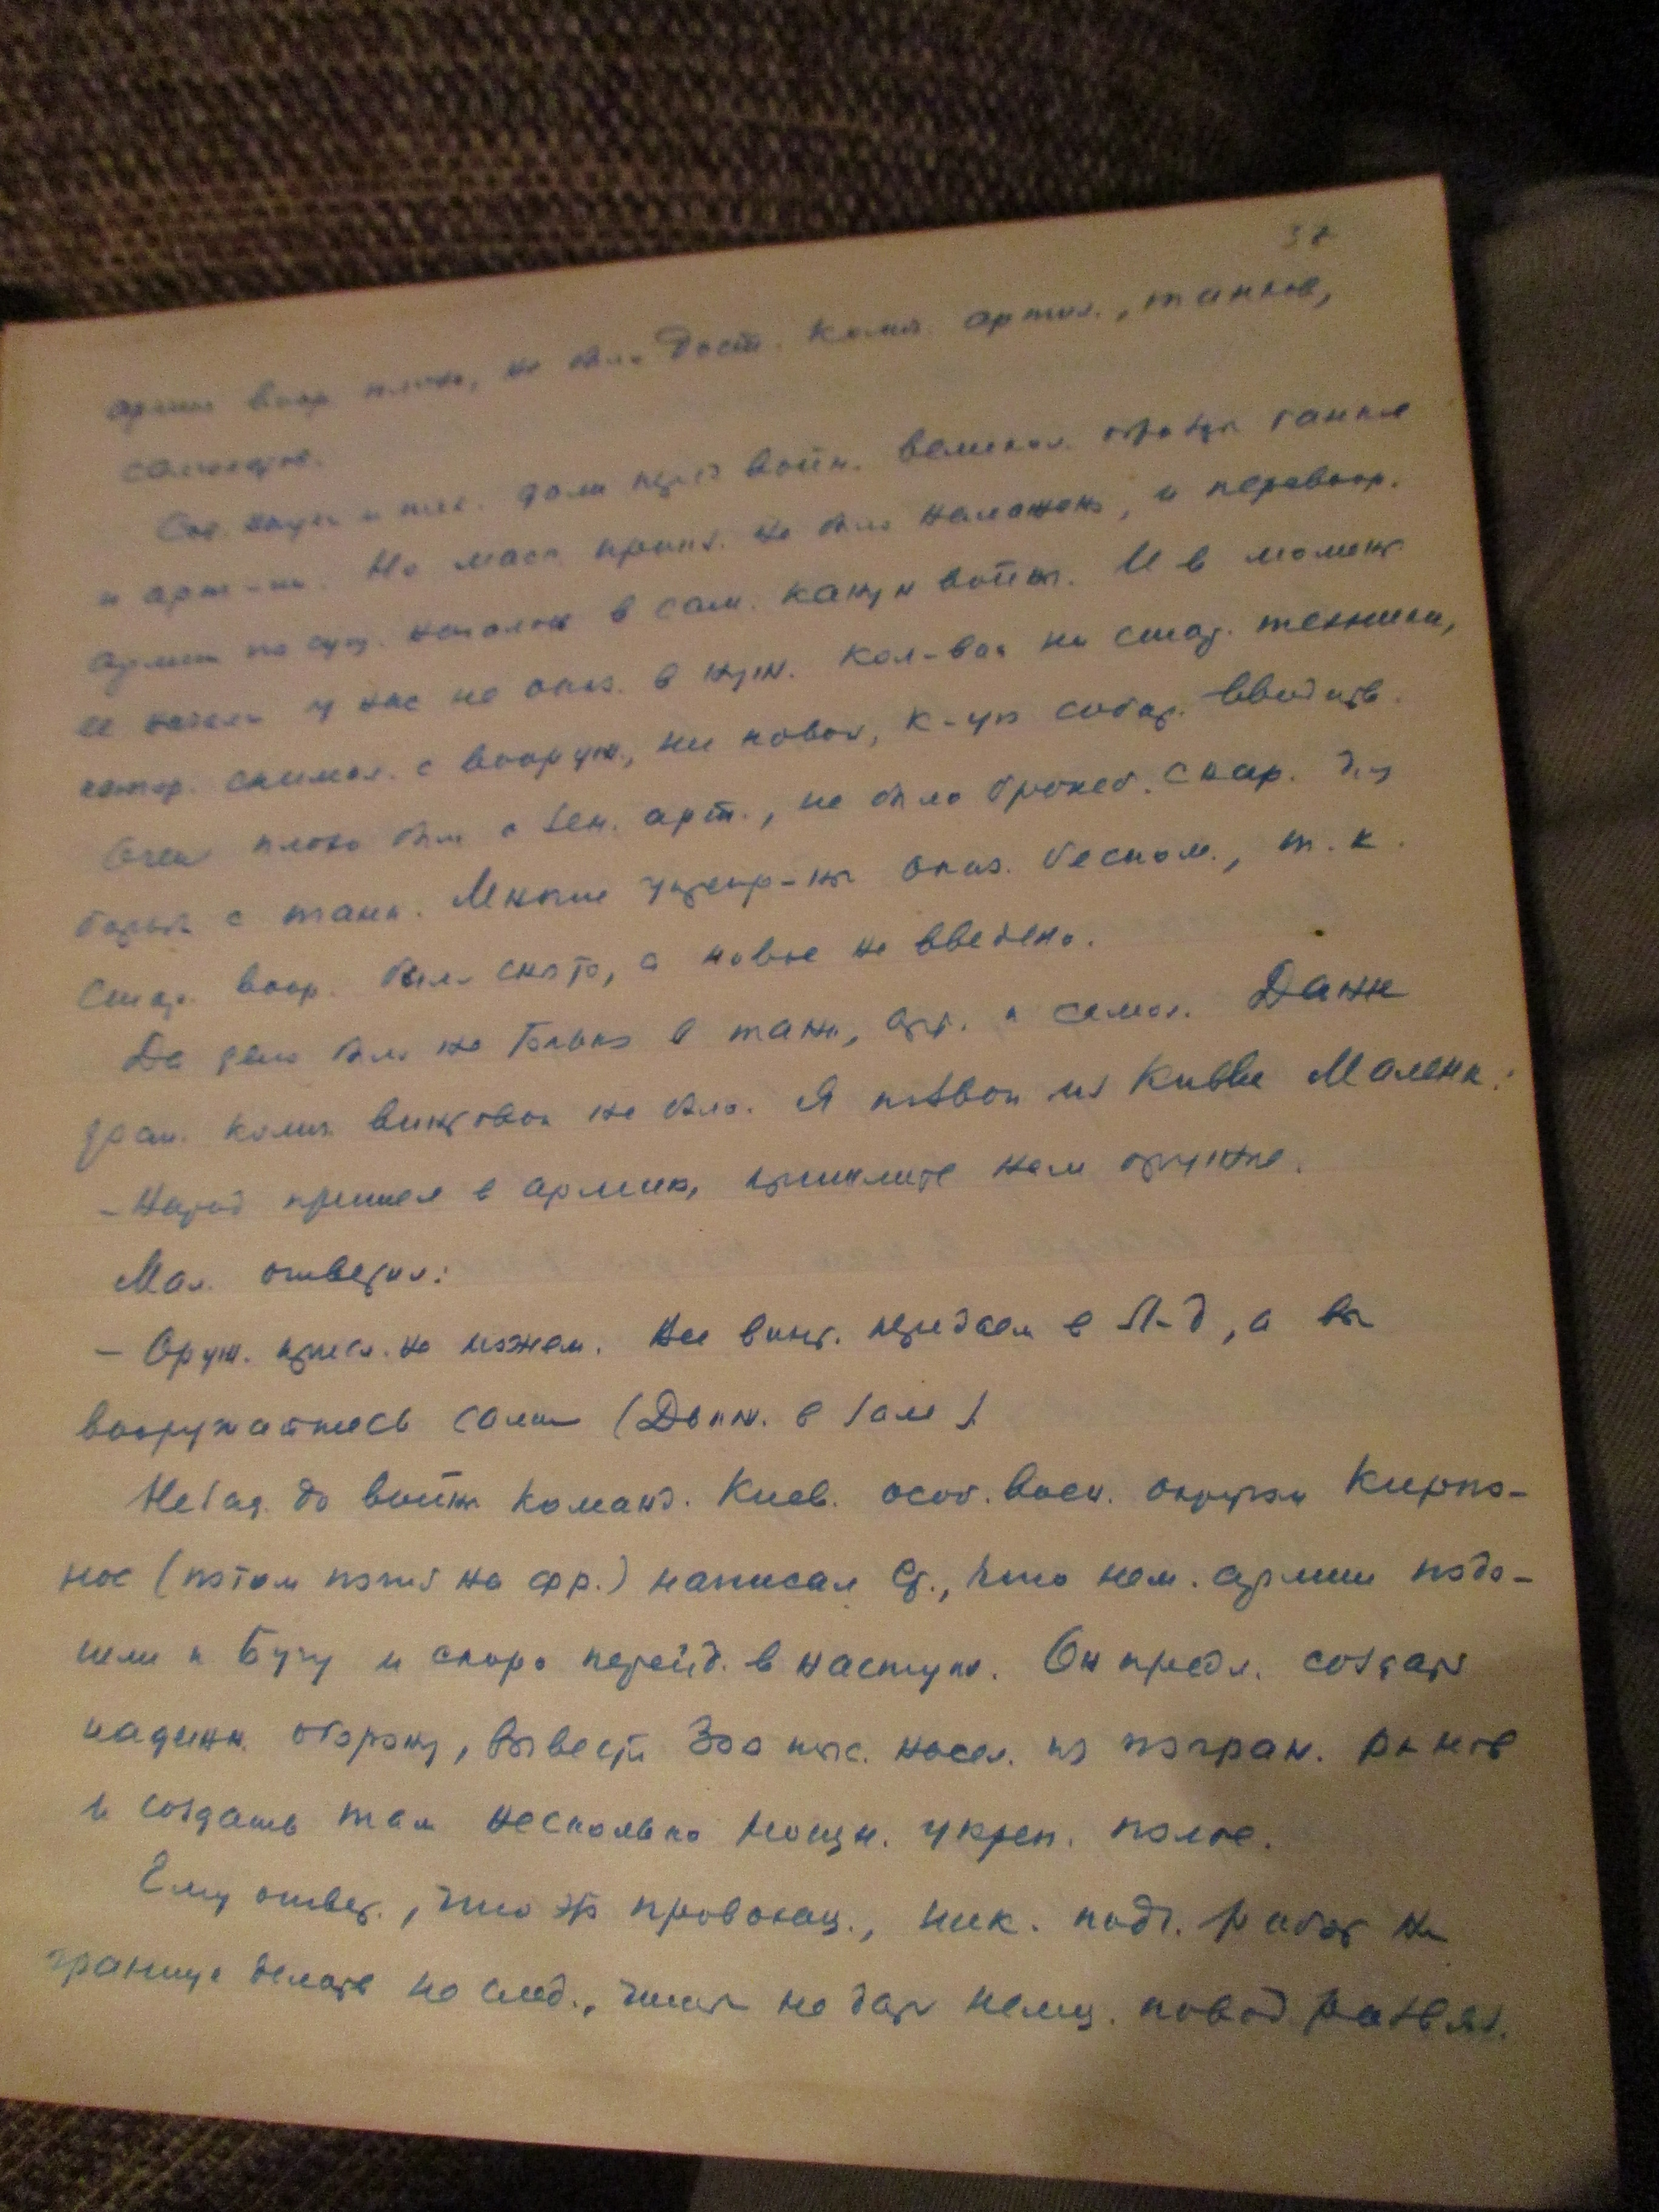 38
армии воор. плохо, не было дост. колич. артил., танков,
самолетов.
Сов. наука и тех. дали перед войн. великол. образцы танков
и арт-ии. Но масс. произв. не было налажено, и перевоор.
армии по сущ. начали в сам. канун войны. И в момент
у нас не оказ. в нужн. кол-вах ни стар. техники,
котор. снимал. с вооруж., ни новой, к-ую собир. вводить.
Очень плохо было с зен. арт., не было бронеб. снар. для
борьбы с танк. Многие укрепр-ны оказ. беспом., т.к.
стар. воор. было снято, а новое не введено.
Да дело было не только в танк., арт. и самол. Даже
колич. винтовок не было. Я позвон из Киева Маленк.:
- Народ пришел в армию, пришлите нам оружие.
Мал. ответил:
- Оруж. присл. не можем. Все винт. передаем в Л-д, а вы
вооружайтесь сами (Движ. в зале).
Незад. до войны команд. Киев. особ. воен. округом Кирпо-
нос (потом погиб на фр.) написал Ст., что нем. армии подо-
шли к Бугу и скоро перейд. в наступл. Он предл. создать
надежн. оборону, вывести 300 тыс. насел. из погран. р-нов
и создать там несколько мощн. укреп. полос.
Ему ответ., что это провокац., ник. подг. работ на
границе делать не след., чтобы не дать немц. повод развяз.